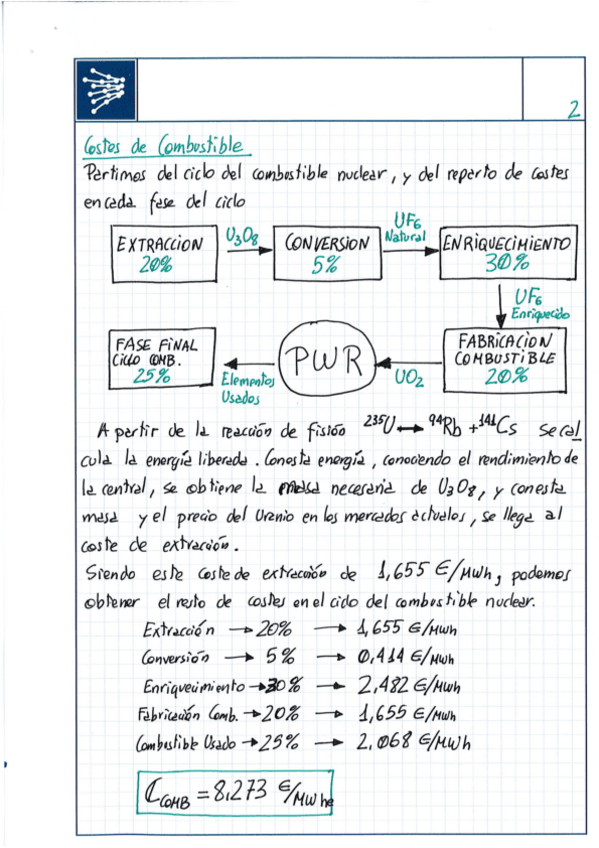 2
Costes de Combustible
Partimos del ciclo del combustible nuclear, y del reparto de costes
en cada fase del ciclo
EXTRACCION
20%
U3O8
CONVERSION
5%
UF6
Natural
ENRIQUECIMIENTO
30%
UF6
Enriquecido
FABRICACION
COMBUSTIBLE
20%
UO2
PWR
Elementos
Usados
FASE FINAL
CICLO COMB.
25%
A partir de la reacción de fisión 235U ⟷ 94Rb + 141Cs se cal
cula la energía liberada. Con esta energía, conociendo el rendimiento de
la central, se obtiene la masa necesaria de U3O8, y con esta
masa y el precio del Uranio en los mercados actuales, se llega al
coste de extracción.
Siendo este coste de extracción de 1,655 €/MWh, podemos
obtener el resto de costes en el ciclo del combustible nuclear.
Extracción → 20% → 1,655 €/MWh
Conversión → 5% → 0,414 €/MWh
Enriquecimiento → 30% → 2,482 €/MWh
Fabricación Comb. → 20% → 1,655 €/MWh
Combustible Usado → 25% → 2,068 €/MWh
CCOMB = 8,273 €/MWhe